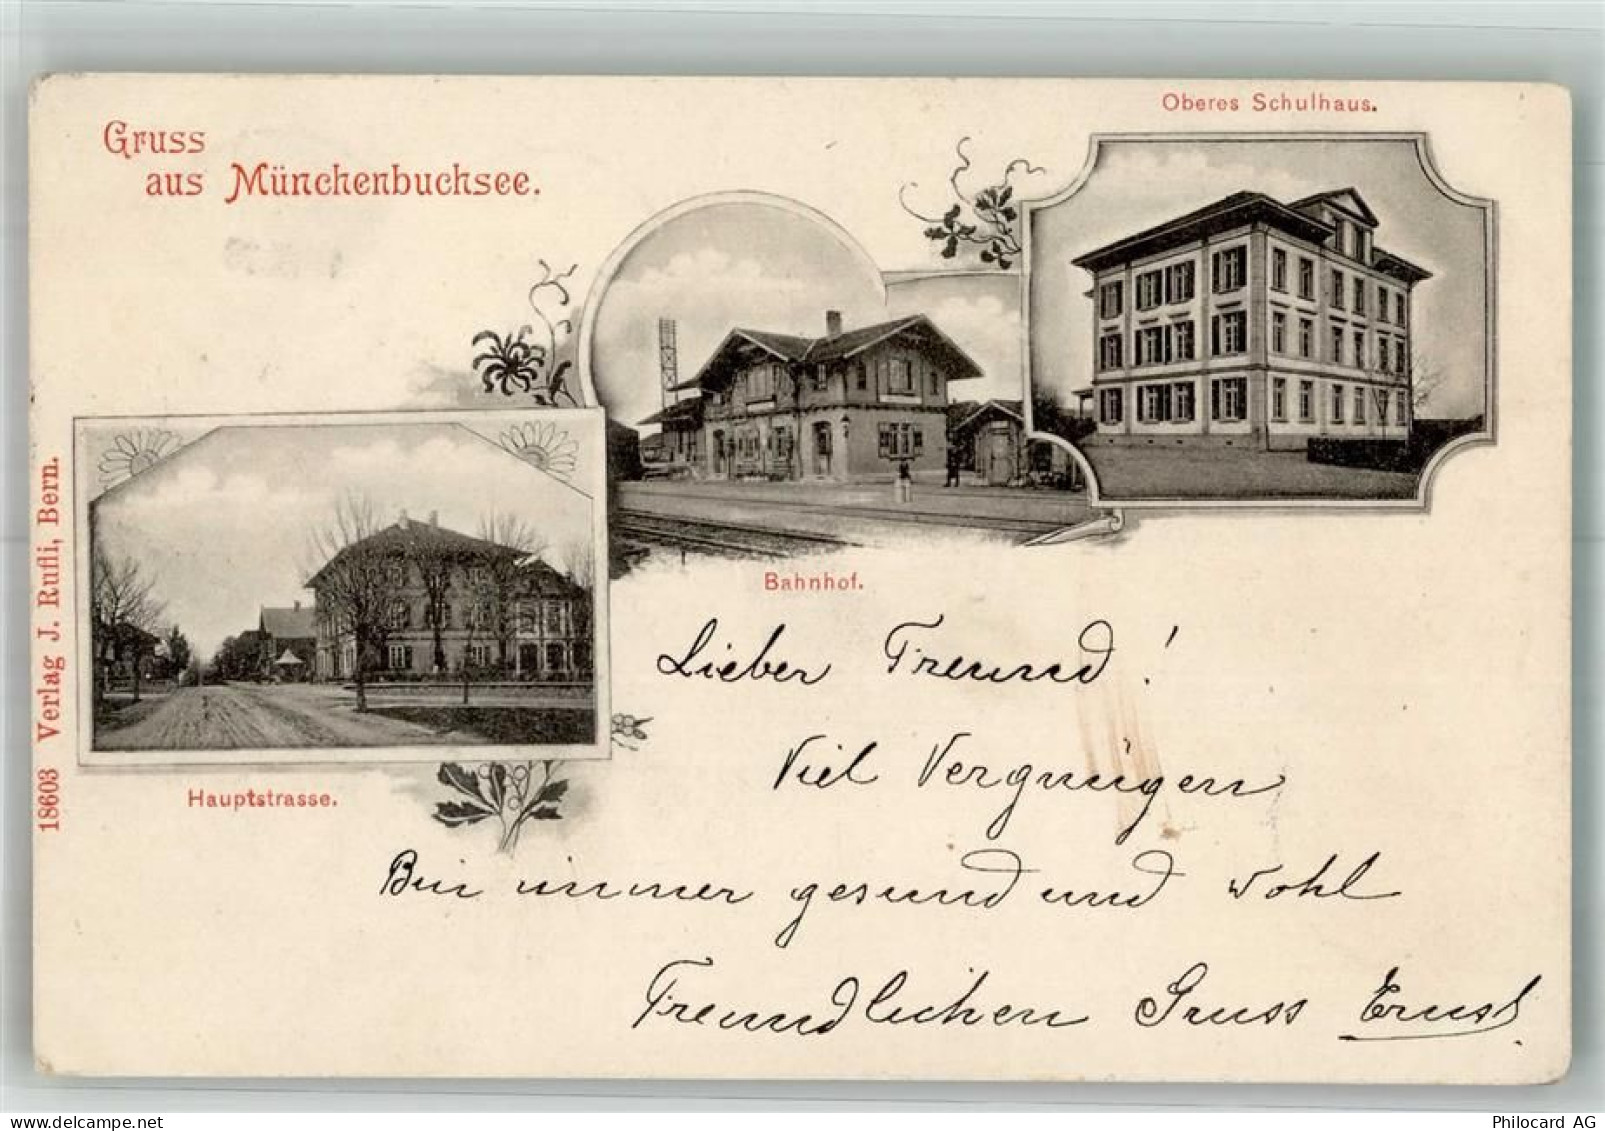 Gruss
aus Münchenbuchsee.
Oberes Schulhaus.
Bahnhof.
Hauptstrasse.
18603 Verlag J. Rufli, Bern.
Lieber Freund!
Viel Vergnügen
Bin immer gesund und wohl
Freundlichen Gruss Ernst.
Philocard AG